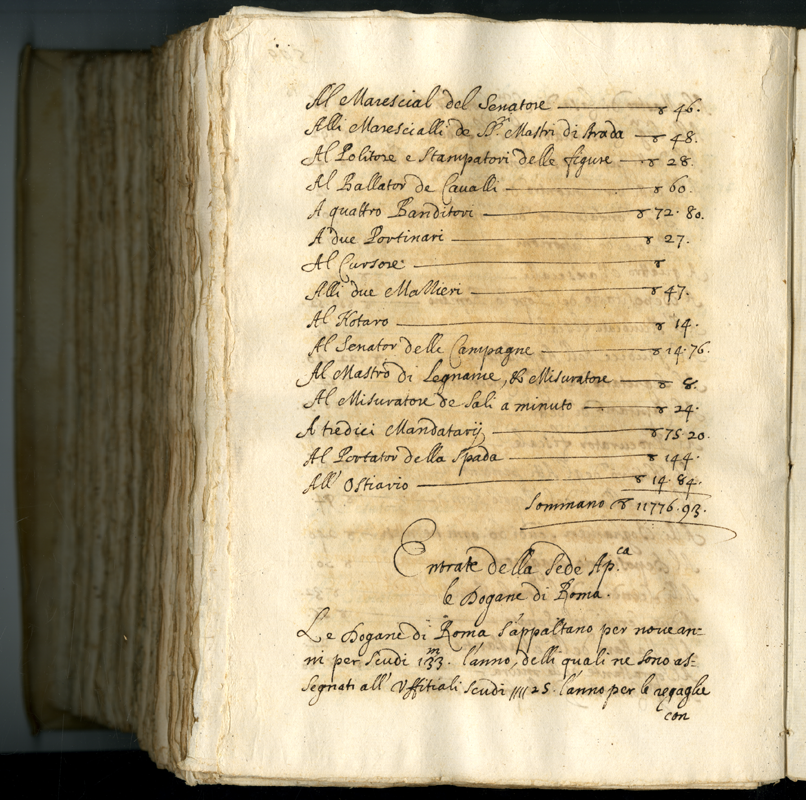 Al Marescial del Senatore ——— ▽ 46.
Alli Marescialli de SS.ri Mastri di strada — ▽ 48.
Al Politore e Stampatori delle figure — ▽ 28.
Al Ballator de Cavalli ——— ▽ 60.
A quattro Banditori ——— ▽ 72. 80.
A due Portinari ——— ▽ 27.
Al Cursore ——— ▽
Alli due Mallieri ——— ▽ 47.
Al Notaro ——— ▽ 14.
Al Senator delle Campagne ——— ▽ 14.76.
Al Mastro di Legname, & Misuratore — ▽ 8.
Al Misuratore de Sali a minuto — ▽ 24.
A tredici Mandatarij ——— ▽ 75 20.
Al Portator della Spada ——— ▽ 144.
All' Ostiario ——— ▽ 14. 84.
Sommano ▽ 11776.93.
Entrate della Sede Ap.ca
le Dogane di Roma.
Le Dogane di Roma s'appaltano per nove an=
ni per scudi 133.m l'anno, delli quali ne sono as=
segnati all' Uffitiali scudi 25. l'anno per le regaglie
con